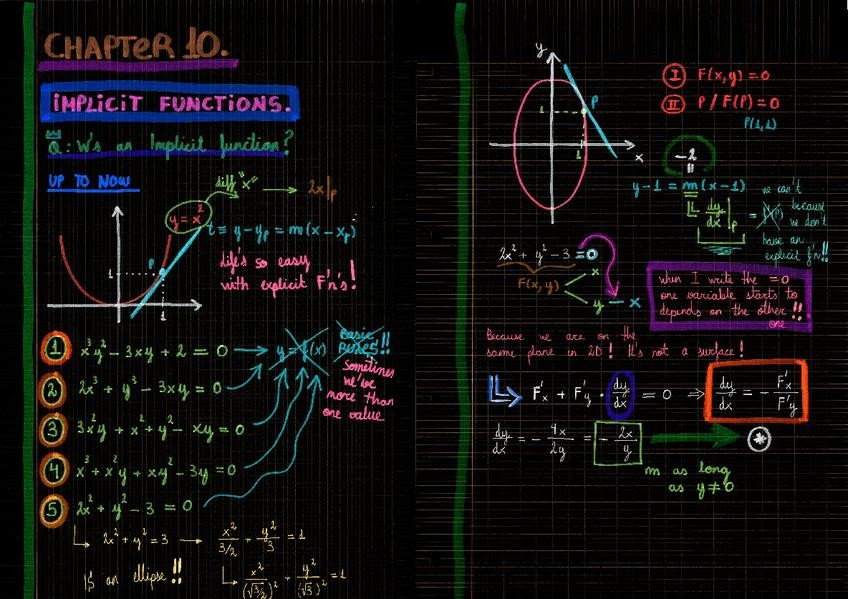 CHAPTER 10.
IMPLICIT FUNCTIONS.
Q: W's an Implicit function?
UP TO NOW
diff "x" → 2x|p
y = x²
t ≡ y - yp = m(x - xp)
P
1
1
life's so easy
with explicit F'n's!
① x³y² - 3xy + 2 = 0 → y = f(x)
② 2x³ + y³ - 3xy = 0
③ 3x²y + x² + y² - xy = 0
④ x³ + x²y + xy² - 3y = 0
⑤ 2x² + y² - 3 = 0
Basic
!!
sometimes
we've
more than
one value
↳ 2x² + y² = 3 → x²/(3/2) + y²/3 = 1
It's an ellipse!! ↳ x²/(√3/2)² + y²/(√3)² = 1
y
P
1
1
x
Ⅰ F(x,y) = 0
Ⅱ P / F(P) = 0
P(1,1)
-2
y - 1 = m(x - 1)
dy/dx|p =
we can't
because
we don't
have an
explicit f'n!!
2x² + y² - 3 = 0
F(x,y)
x
y - x
when I write the =0
one variable starts to
depends on the other !!
one
Because we are on the
same plane in 2D! It's not a surface!
F'x + F'y · dy/dx = 0 ⇒ dy/dx = - F'x/F'y
dy/dx = - 4x/2y = - 2x/y → *
m as long
as y ≠ 0